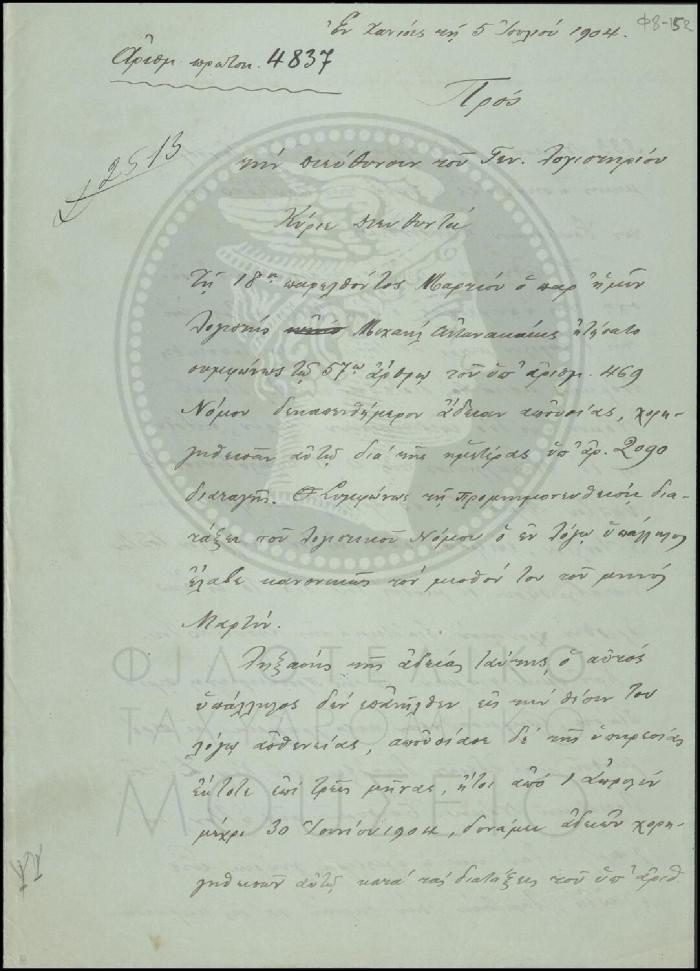 Φ8-152
Ἐν Χανίοις τῇ 5 Ἰουλίου 1904.
Ἀριθμ. πρωτοκ. 4837
Πρός
2513
τήν Διεύθυνσιν τοῦ Γεν. Λογιστηρίου
Κύριε Διευθυντά
Τῇ 18ῃ παρελθόντος Μαρτίου ὁ παρ' ἡμῖν
Λογιστής Μιχαήλ ᾐτήσατο
συμφώνως τῷ 57ῳ ἄρθρῳ τοῦ ὑπ' ἀριθμ. 469
Νόμου δεκαπενθήμερον ἄδειαν ἀπουσίας, χορη-
γηθεῖσαν αὐτῷ διά τῆς ἡμετέρας ὑπ' ἀρ. 2090
διαταγῆς. Συμφώνως τῇ προμνημονευθείσῃ δια-
τάξει τοῦ Λογιστικοῦ Νόμου ὁ ἐν λόγῳ ὑπάλληλος
ἔλαβε κανονικῶς τόν μισθόν του τοῦ μηνός
Μαρτίου.
Ληξάσης τῆς ἀδείας ταύτης ὁ αὐτός
ὑπάλληλος δέν ἐπανῆλθεν εἰς τήν θέσιν του
λόγῳ ἀσθενείας, ἀπουσίασε δέ τῆς ὑπηρεσίας
ἔκτοτε ἐπί τρεῖς μῆνας, ἤτοι ἀπό 1 Ἀπριλίου
μέχρι 30 Ἰουνίου 1904, δυνάμει ἀδειῶν χορη-
γηθεισῶν αὐτῷ κατά τάς διατάξεις τοῦ ὑπ' ἀριθ.
ΦΙΛΟΤΕΛΙΚΟ
ΤΑΧΥΔΡΟΜΙΚΟ
ΜΟΥΣΕΙΟ